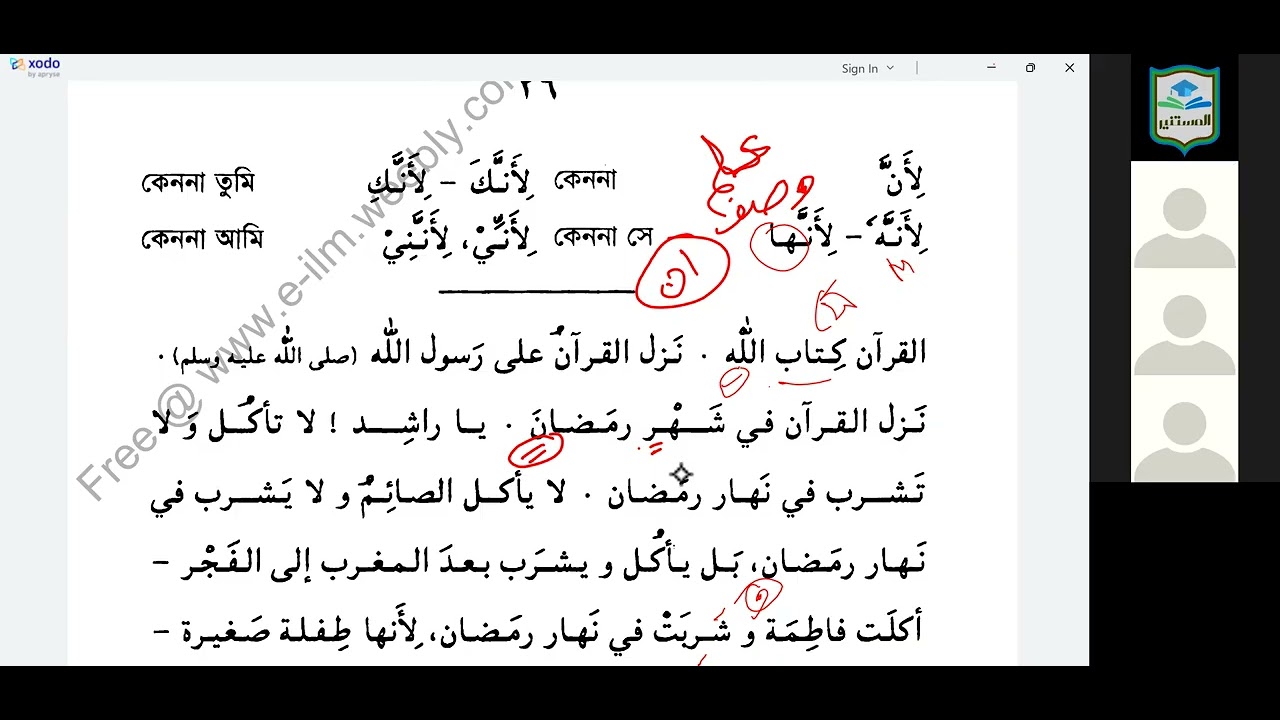 xodo
by apryse
Sign In
٢٦
لِأَنَّ কেননা لِأَنَّكَ – لِأَنَّكِ কেননা তুমি
لِأَنَّهُ – لِأَنَّها কেননা সে لِأَنِّيْ، لِأَنَّنِيْ কেননা আমি
ان
القرآن كِتاب اللّٰه . نَزل القرآنُ على رَسول اللّٰه (صلى اللّٰه عليه وسلم) .
نَزل القرآن في شَهْرِ رمَضانَ . يا راشِد ! لا تأكُل وَ لا
تَشرب في نَهار رمَضان . لا يأكل الصائِمُ و لا يَشرب في
نَهار رمَضان، بَل يأكُل و يشرَب بعدَ المغرب إلى الفَجْر –
أكلَت فاطِمَة و شَربَتْ في نَهار رمَضان، لِأَنها طِفلة صَغيرة –
Free @ www.e-ilm.weebly.com
المستنير